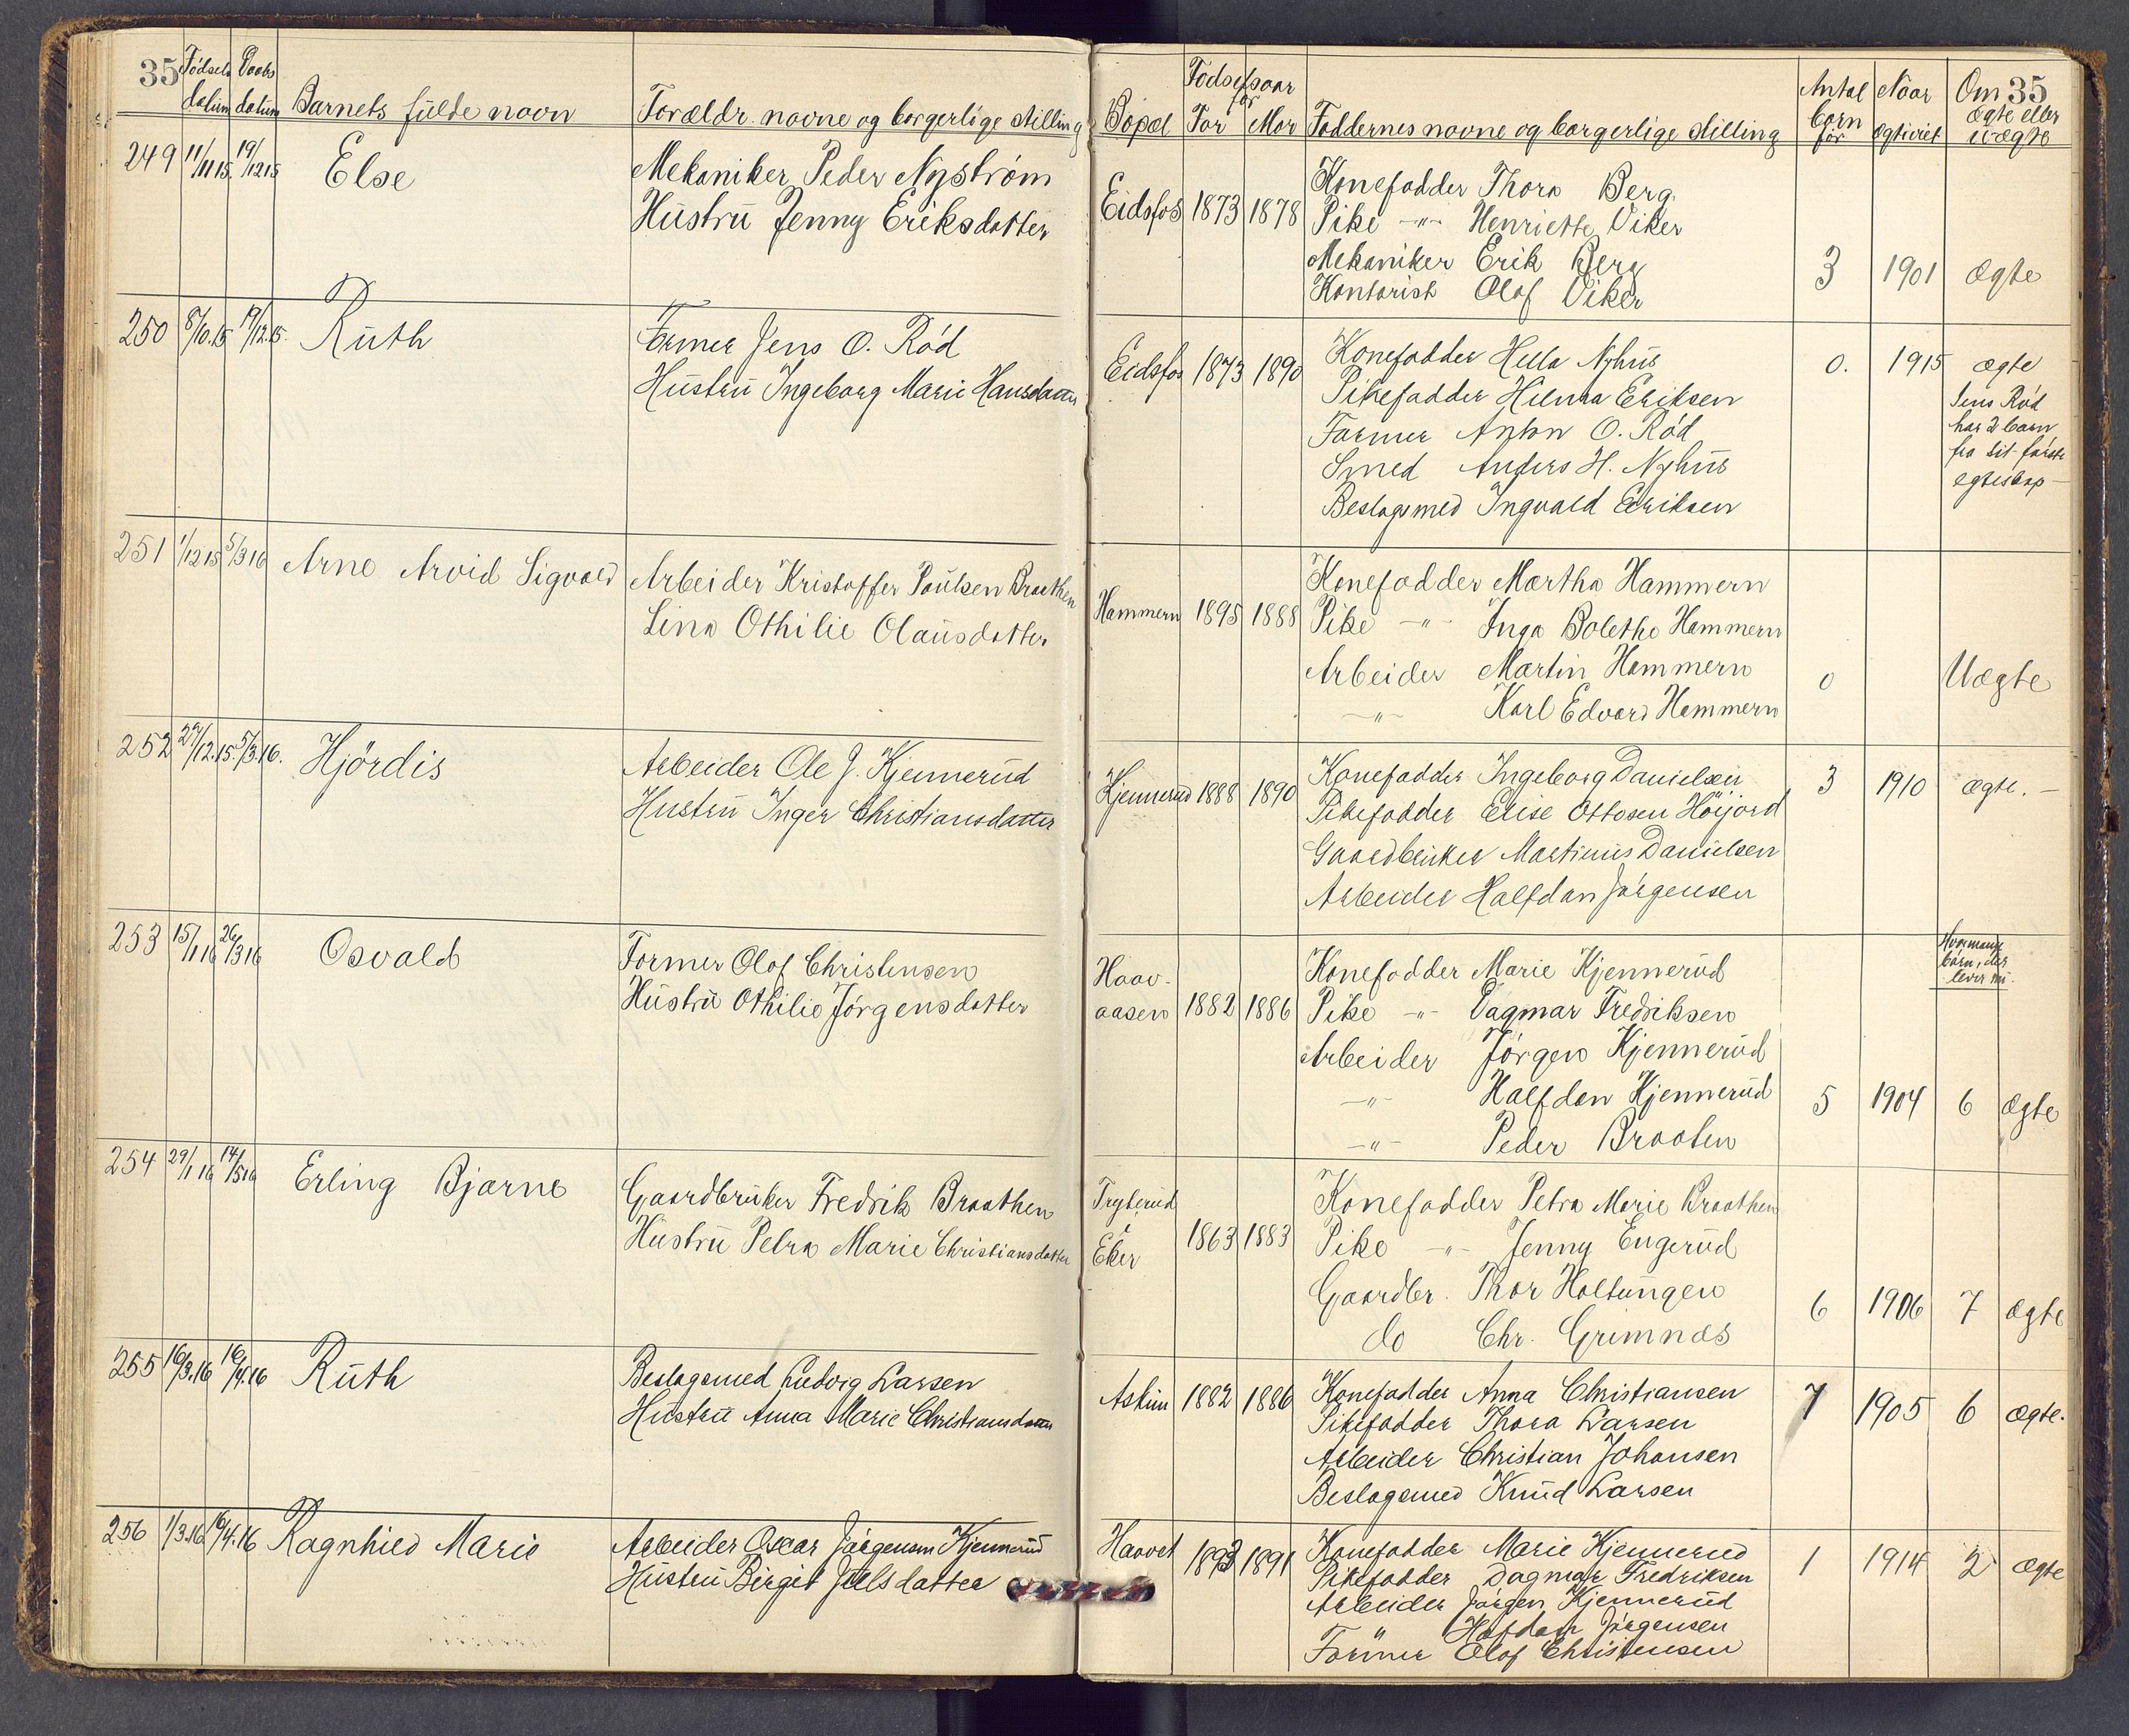 35 Fødsels datum Daabs datum Barnets fulde navn Forældr. navne og borgerlige stilling
Bopæl Fødselsaar for Far Mor Faddernes navne og borgerlige stilling Antal børn før Naar ægtiviet Om ægte eller uægte 35
249 11/11 15. 19/12 15 Else Mekaniker Peder Nystrøm
Hustru Jenny Eriksdatter
Eidsfos 1873 1878 Konefadder Thora Berg.
Pike -"- Henriette Viker
Mekaniker Erik Berg
Kontorist Olaf Viker 3 1901 ægte
250 8/10.15 19/12.15. Ruth Former Jens O. Rød
Hustru Ingeborg Marie Hansdatter
Eidsfos 1873 1890 Konefadder Hella Nyhus 0. 1915 ægte
Pikefadder Hilma Eriksen Jens Rød
Former Anton O. Rød har 2 barn
Smed Anders H. Nyhus fra sit første
Beslagsmed Ingvald Eriksen egteskap –
251 1/12 15 5/3 16 Arne Arvid Sigvald Arbeider Kristoffer Paulsen Braathen
Lina Othilie Olausdatter
Hammern 1895 1888 Konefadder Martha Hammern
Pike -"- Inga Bolethe Hammern
Arbeider Martin Hammern 0 Uægte
-"- Karl Edvard Hammern
252 27/12.15. 5/3.16. Hjördis Arbeider Ole J. Kjennerud
Hustru Inger Christiansdatter
Kjennerud 1888 1890 Konefadder Ingeborg Danielsen 3 1910 ægte. –
Pikefadder Elise Ottosen Höijord
Gaardbruker Martinus Danielsen
Arbeider Halfdan Jørgensen
253 15/1 16 26/3 16 Osvald Former Olaf Christensen
Hustru Othilie Jørgensdatter
Haavaasen 1882 1886 Konefadder Marie Kjennerud Hvormange børn, der lever nu.
Pike -"- Dagmar Fredriksen
Arbeider Jørgen Kjennerud
-"- Halfdan Kjennerud 5 1904 6 Ægte
-"- Peder Braaten
254 29/1 16 14/5 16 Erling Bjarne Gaardbruker Fredrik Braathen
Hustru Petra Marie Christiansdatter
Tryterud Eker 1863 1883 Konefadder Petra Marie Braathen
Pike -"- Jenny Engerud
Gaardbr. Thor Holtungen 6 1906 7 ægte
do Chr. Grimnæs
255 16/3.16 16/4.16 Ruth Beslagsmed Ludvig Larsen
Hustru Anna Marie Christiansdatter
Askim 1882 1886 Konefadder Anna Christiansen 7 1905 6 ægte.
Pikefadder Thora Larsen
Arbeider Christian Johansen
Beslagsmed Knud Larsen
256 1/3.16 16/4.16 Ragnhild Marie Arbeider Oscar Jørgensen Kjennerud
Hustru Birgit Julsdatter
Haavet 1893 1891 Konefadder Marie Kjennerud 1 1914 2 ægte
Pikefadder Dagmar Fredriksen
Arbeider Jørgen Kjennerud
" Hafdan Jørgensen
Former Olaf Christensen